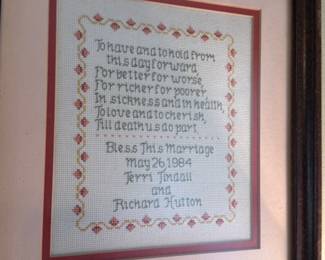 To have and to hold from
this day forward
For better for worse
For richer for poorer
In sickness and in health
To love and to cherish
Till death us do part
Bless This Marriage
May 26, 1984
Terri Tindall
and
Richard Hutton